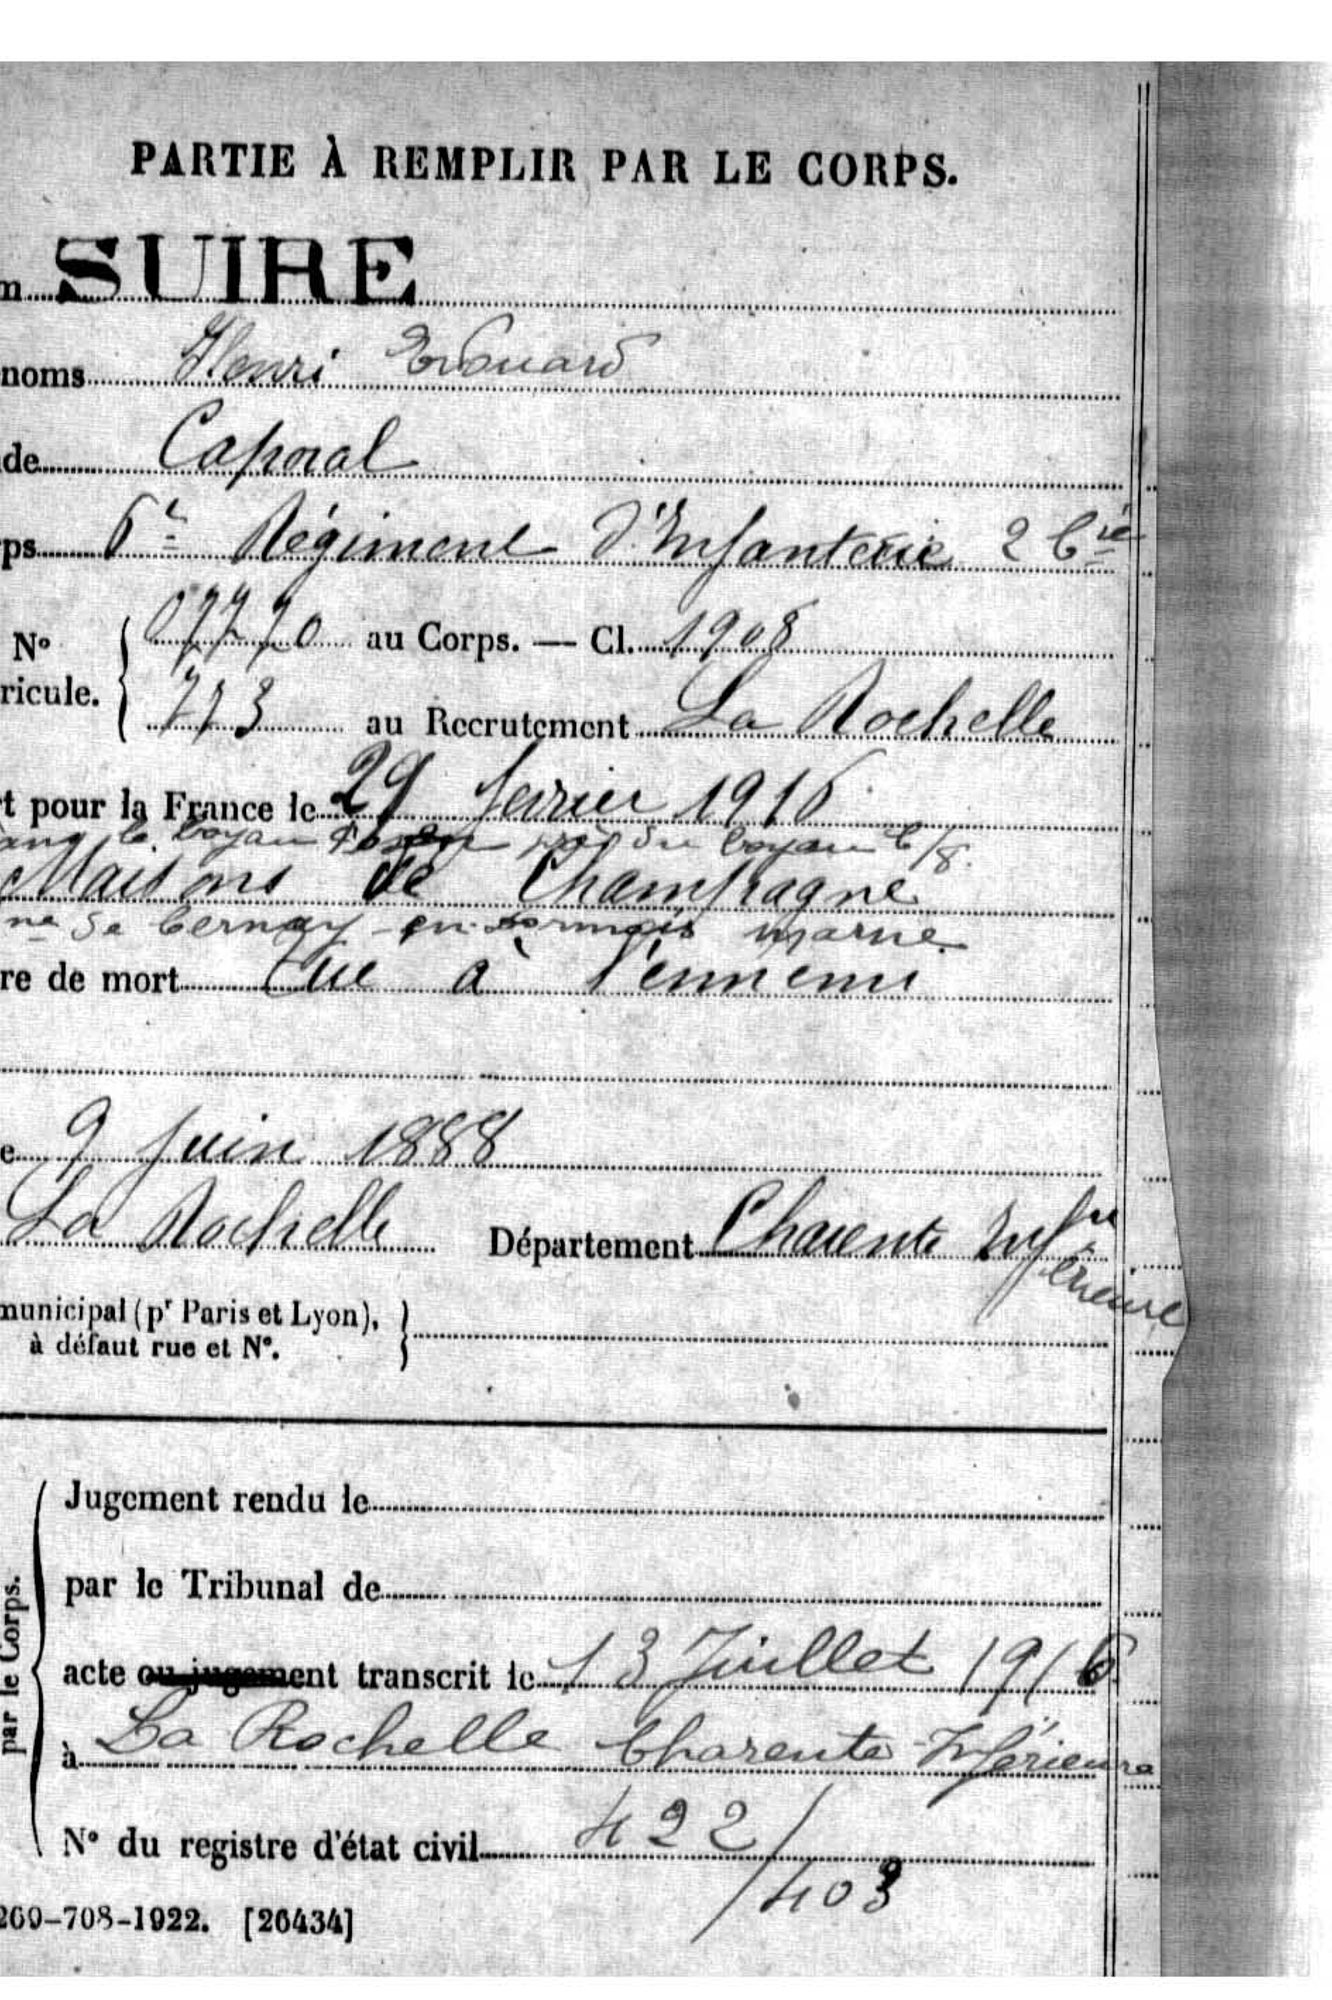 PARTIE À REMPLIR PAR LE CORPS.
m SUIRE
noms Henri Edouard
de Caporal
ps 6e Régiment d'Infanterie 2 Cie
No 07770 au Corps. — Cl. 1908
ricule. 773 au Recrutement La Rochelle
t pour la France le 29 février 1916
le boyau près du boyau C/8.
Maisons de Champagne
ne de Cernay en Dormois marne
re de mort Tué à l'ennemi
e 9 Juin 1888
La Rochelle Département Charente Inférieure
municipal (pr Paris et Lyon),
à défaut rue et N°.
Jugement rendu le
par le Tribunal de
par le Corps.
acte ou jugement transcrit le 13 Juillet 1916
à La Rochelle Charente-Inférieure
N° du registre d'état civil 422/
/403
269-708-1922. [26434]